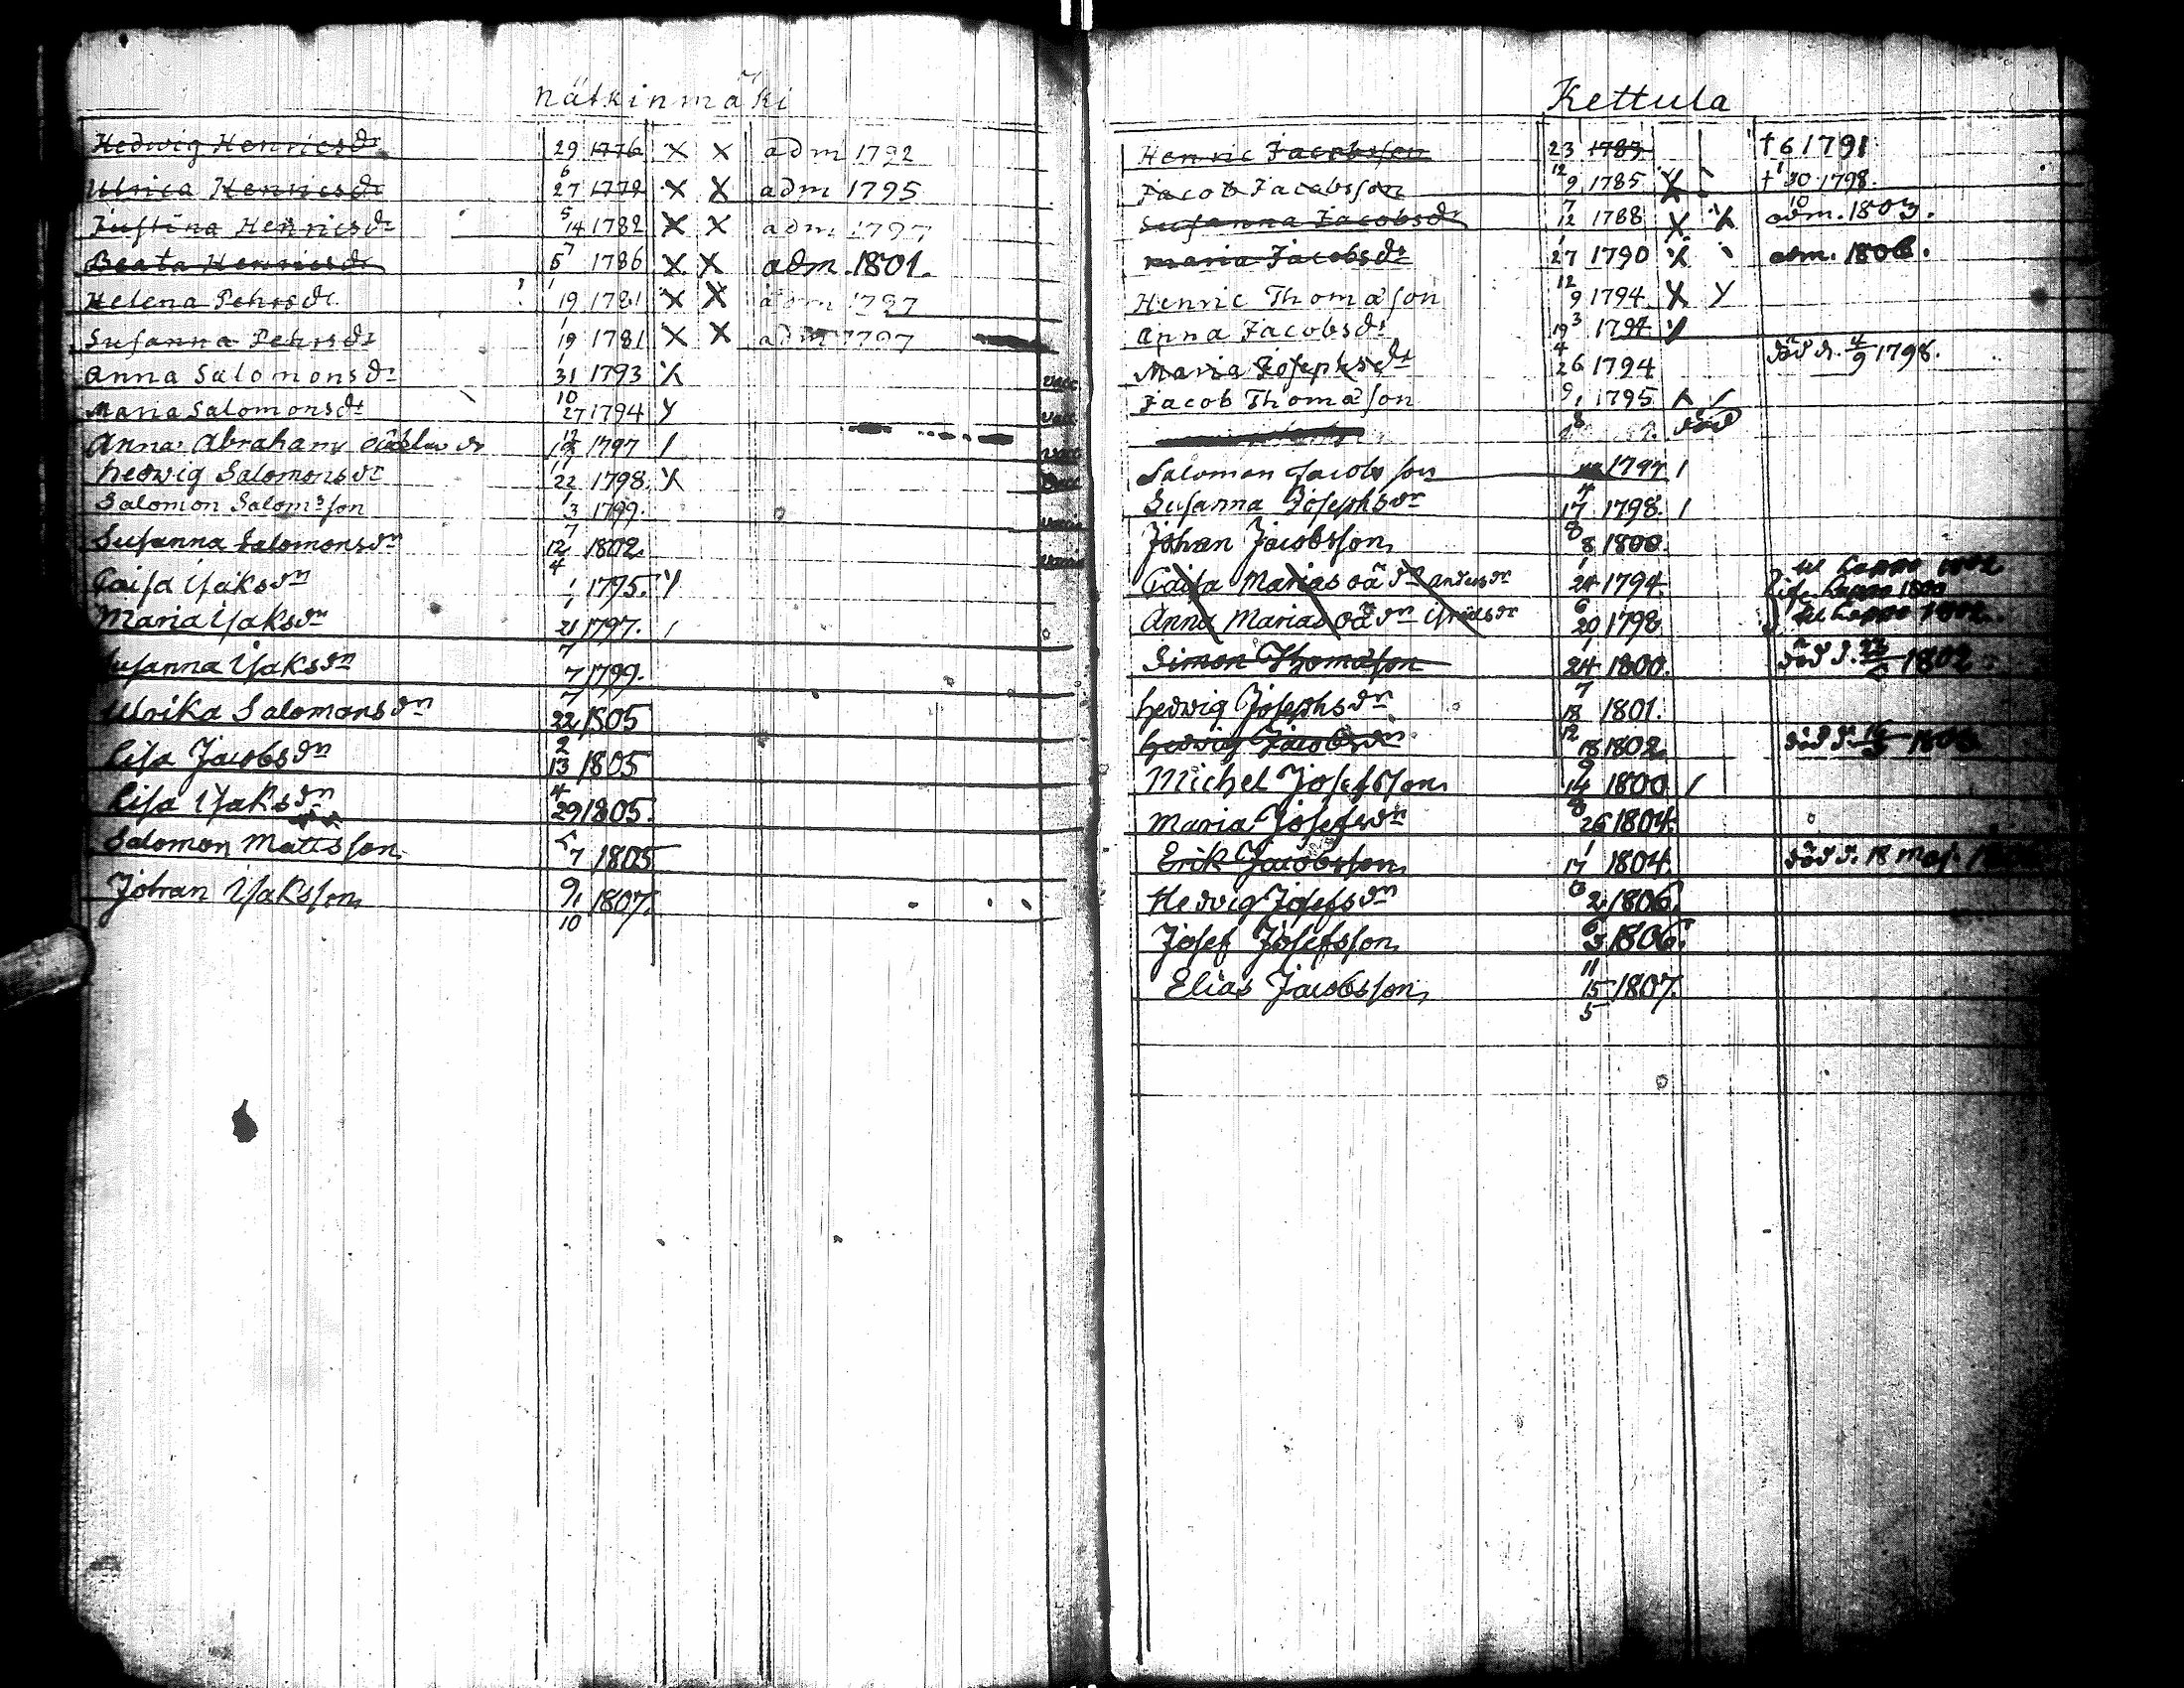 Nätkinmäki
Hedwig Henricsdr 29/6 1776 X X adm 1792
Ulrica Henricsdr 27/5 1779 X X adm 1795
Justina Henricsdr 14/7 1782 X X adm 1797
Beata Henricsdr 5/1 1786 X X adm. 1801.
Helena Pehrsdr 19/1 1781 X X adm 1797
Susanna Pehrsdr 19/1 1781 X X adm 1797
Anna Salomonsdr 31/10 1793 X vacc
Maria Salomonsdr 27/12 1794 Y vacc
Anna Abrahams dr 1797 / vacc
Hedwig Salomonsdr 22/1 1798. X
Salomon Salomsson 3/7 1799.
Susanna Salomonsdr 12/4 1802
Caisa Isaksdr 1/1 1795. Y
Maria Isaksdr 21/7 1797. /
Susanna Isaksdr 7/7 1799.
Ulrika Salomonsdr 22/2 1805
Lisa Jacobsdr 13/4 1805
Lisa Isaksdr 29/5 1805.
Salomon Mattsson 7/9 1805
Johan Isaksson 1/10 1807.
Kettula
Henric Jacobsson 23/12 1783 † 6/1 1791
Jacob Jacobsson 9/7 1785 X † 30/10 1798.
Susanna Jacobsdr 12/1 1788 X X adm. 1803.
Maria Jacobsdr 27/12 1790 X adm. 1806.
Henric Thomason 9/3 1794 X Y
Anna Jacobsdr 19/4 1794 Y
Maria Josephsdr 26/9 1794 död d. 4/9 1798.
Jacob Thomason 1/8 1795 X /
död
Salomon Jacobsson 1797 /
Susanna Josephsdr 17/8 1798. /
Johan Jacobsson 8/1 1800.
Caisa Marias oä dr Andersdr 24/6 1794.
Anna Marias oä dr 20/1 1798
Simon Thomason 24/7 1800. död d. 1802
Hedwig Josephsdr 18/12 1801.
Hedwig Jacobsdr 18/9 1802. död d.
Michel Josefsson 14/8 1800 /
Maria Josefsdr 26/1 1804.
Erik Jacobsson 17/6 1804. död d. 18 maj.
Hedvig Josefsdr 2/6 1806.
Josef Josefsson 3/11 1806.
Elias Jacobsson 15/5 1807.